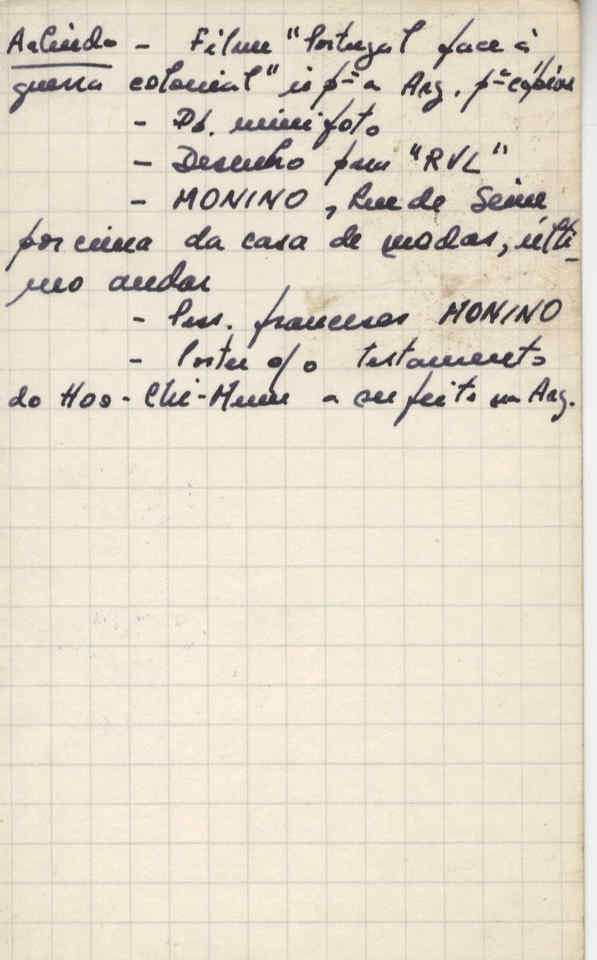 Arlindo - Filme "Portugal face à
guerra colonial" ir pª a Arg. pª cópias
- Db. mini foto
- Desenho para "RVL"
- MONINO, Rue de Seine
por cima da casa de modas, últi-
mo andar
- francesas MONINO
- Poster c/o testamento
do Hoo-Chi-Meen a ser feito na Arg.